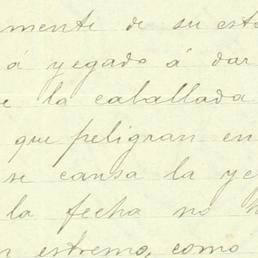 mente de su est
á yegado á dar
e la caballada
que peligran en
se cansa la ye
la fecha no h
n estremo, como